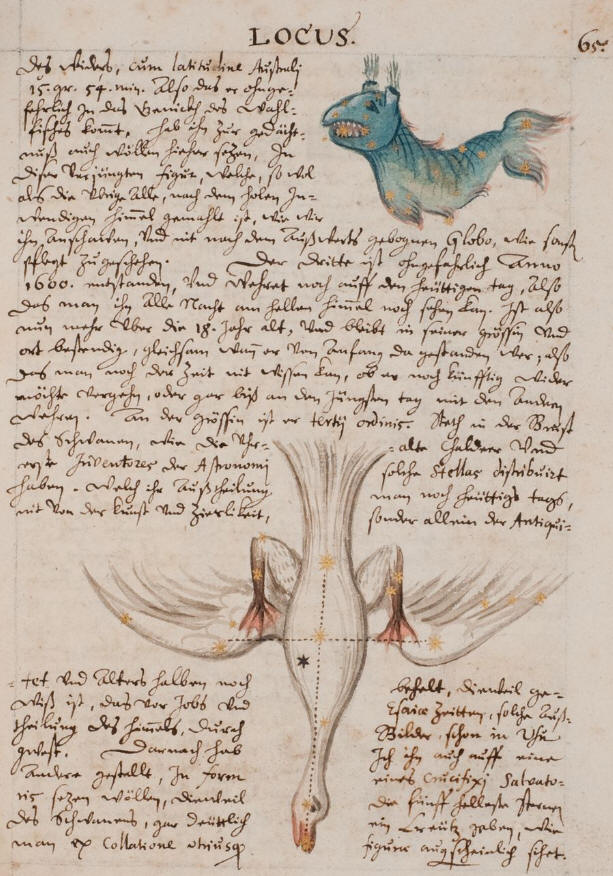 LOCUS.
65.
des Widers, cum latitudine Australj
15. gr. 54. min. Also das er ohnge-
fehrlich In das Genickh des Wahl-
fisches kommt, hab ihn zur gedächt-
nuß auch wöllen hieher setzen, In
diser Verjüngten figur, welche, so wol
als die Vbrige alle, nach dem holen In-
wendigen himmel gemahlt ist, wie wir
ihn Anschawen, Vnd nit nach dem Außwerts gebognen Globo, wie sonst
pflegt zu geschehen. Der dritte ist Ohngefehrlich Anno
1600. entstanden, Vnd Wehret noch auff den heüttigen tag, Also
das man ihn Alle Nacht am hellen himmel noch sehen kan. Ist also
nun mehr Vber die 18. Jahr alt, Vnd bleibt in seiner grössin Vnd
ort bestendig, gleichsam wann er Von Anfang da gestanden wer, also
das man noch der Zeit nit wissen kan, ob er noch künfftig wider
möchte Vergehn, oder gar biß an den Jüngsten tag mit den Andern
Wehren. An der grössin ist er tertij ordinis. Steth in der Brust
des Schwanen, wie die Vhr-
alte Chaldeer Vnd
erste Inventores der Astronomi
solche Stellas distribuirt
haben. Welch ihr Außtheilung
man noch heüttigs tags,
nit Von der kunst Vnd Zierligkeit,
sonder allein der Antiqui-
tet Vnd Alters halben noch
behelt, dieweil ge-
Wiß ist, das Vor Jobs Vnd
Esaiae Zeitten, solche Auß-
theilung des himmels, durch
Bilder, schon in Vsu
gwest. Darnach hab
Ich ihn auch auff eine
Andere gestellt, In form
eines Crucifixi Salvato-
ris setzen wöllen, dieweil
die fünff helleste sternen
des Schwanens, gar deütlich
ein Creütz geben, wie
man ex Collatione utriusq
figurae augscheinlich sihet.